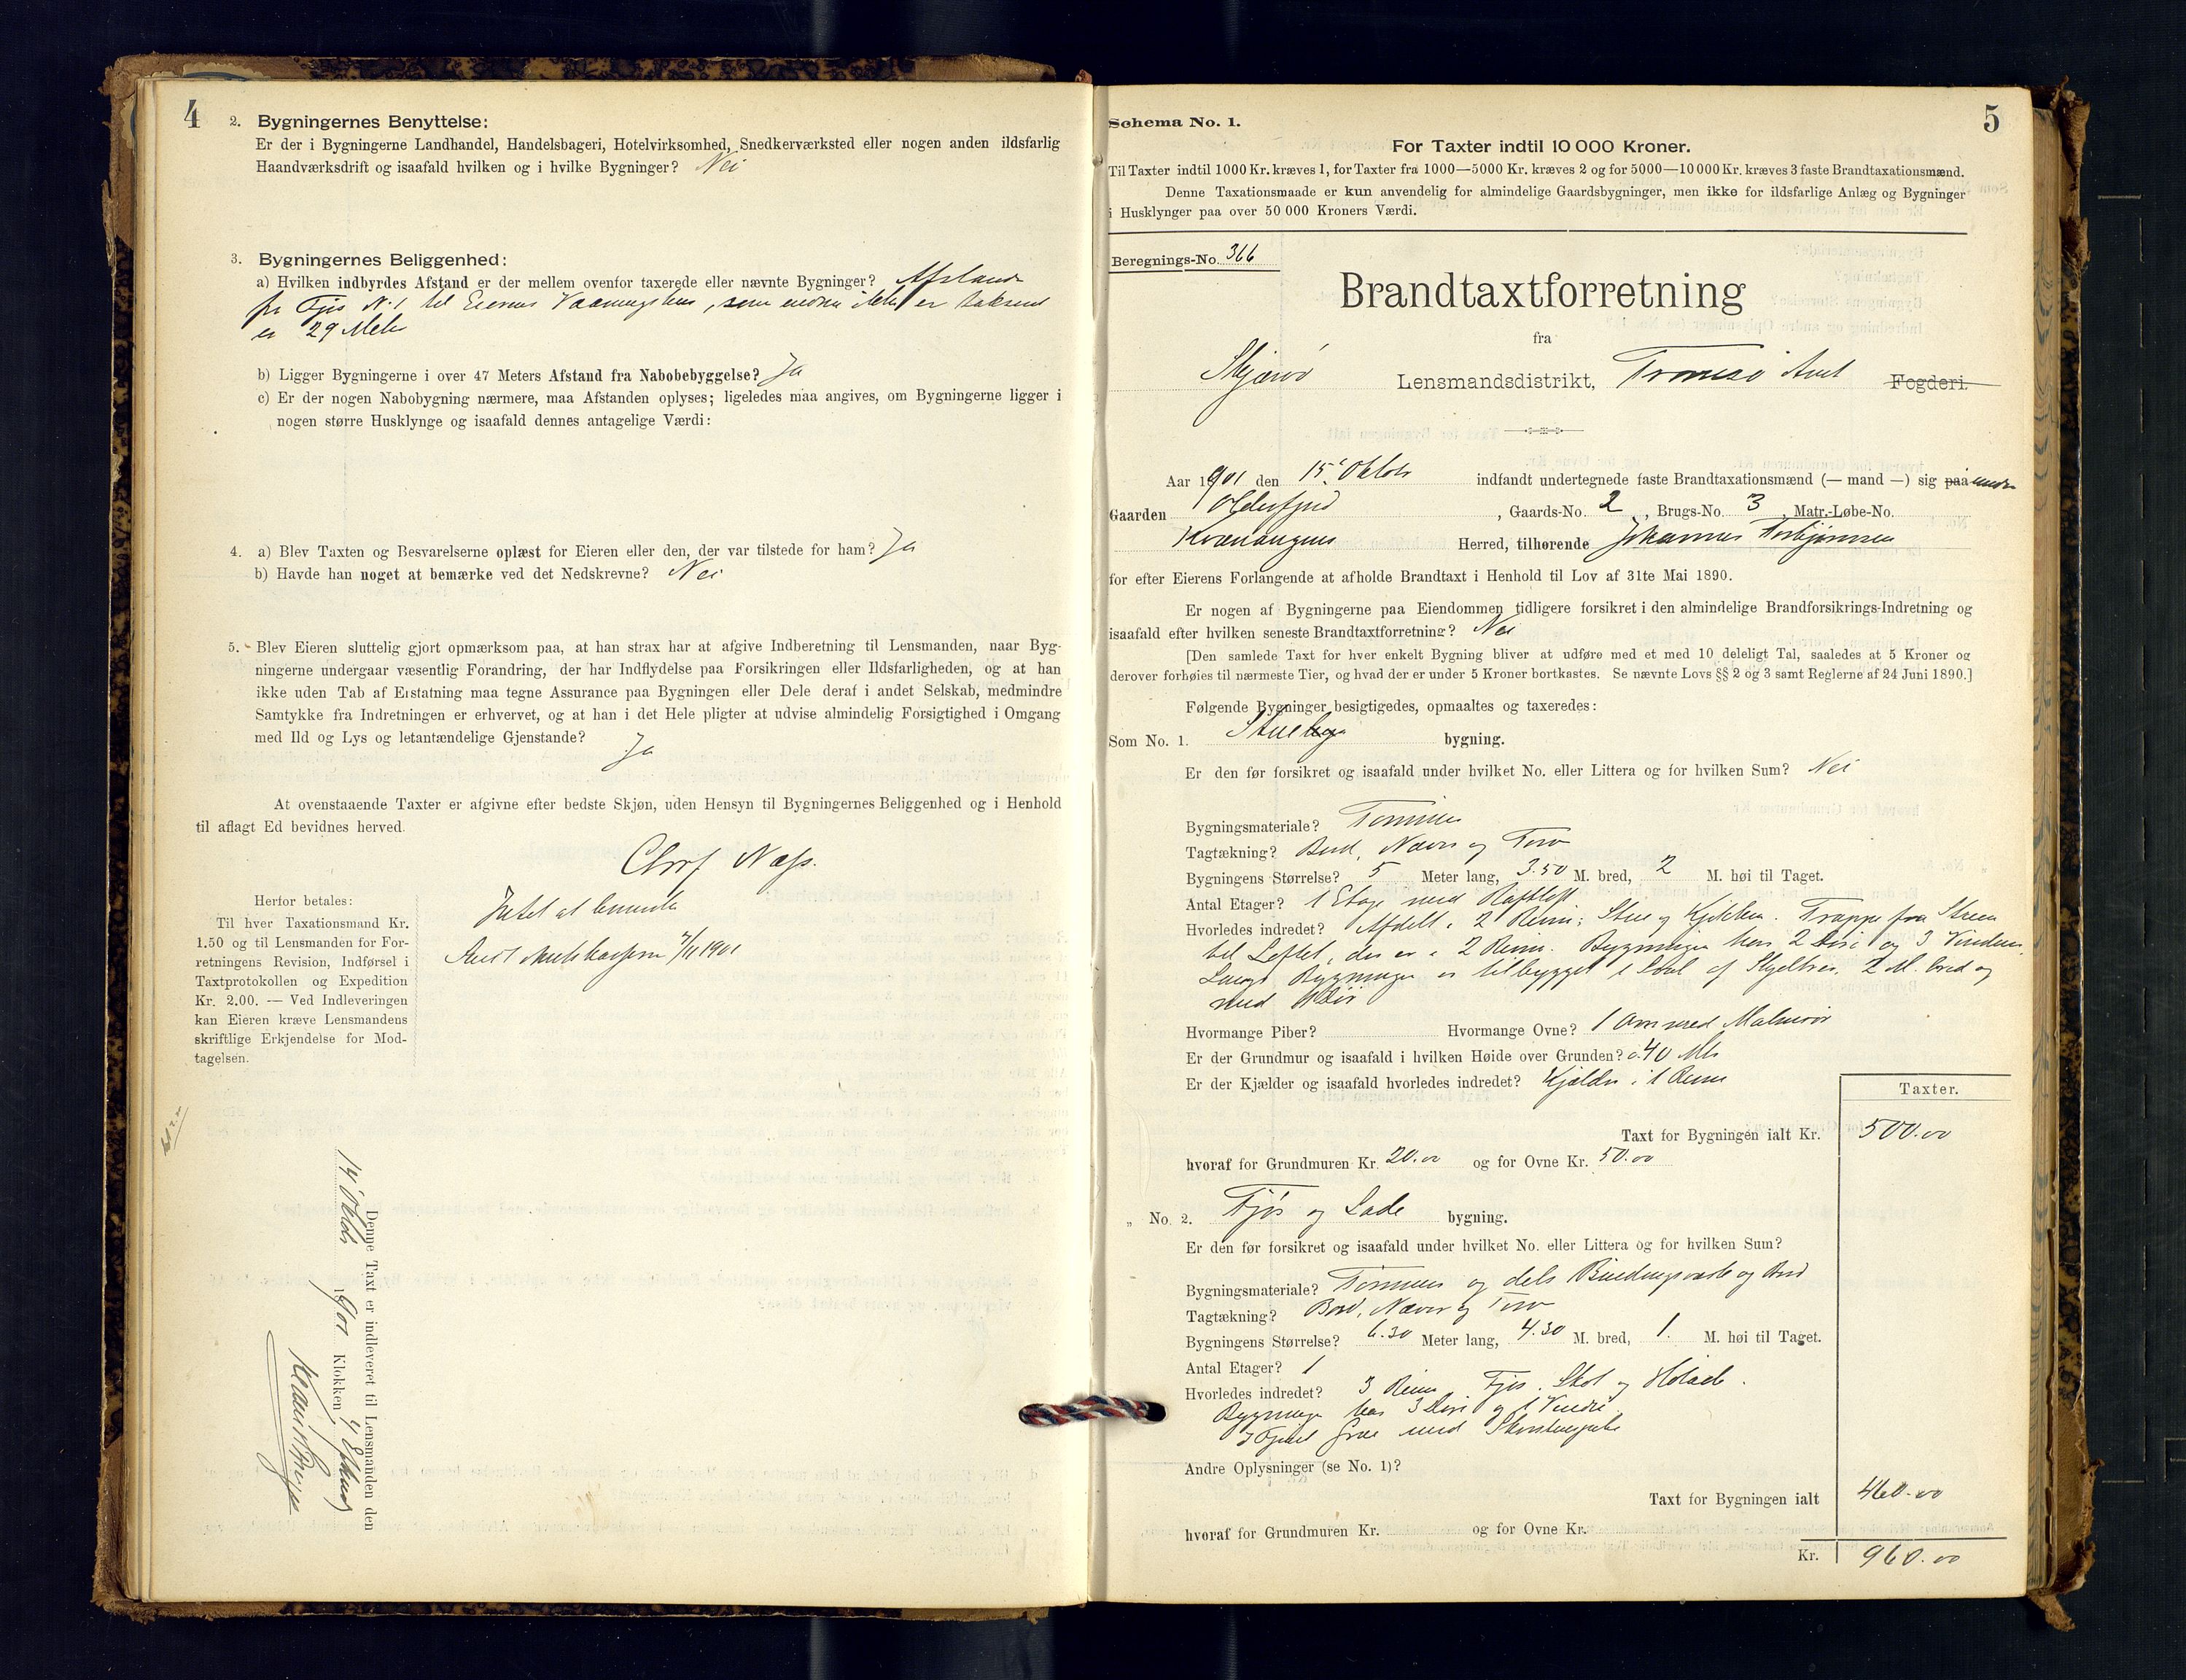 4
2. Bygningernes Benyttelse:
Er der i Bygningerne Landhandel, Handelsbageri, Hotelvirksomhed, Snedkerværksted eller nogen anden ildsfarlig
Haandværksdrift og isaafald hvilken og i hvilke Bygninger? Nei
3. Bygningernes Beliggenhed:
a) Hvilken indbyrdes Afstand er der mellem ovenfor taxerede eller nævnte Bygninger? Afstand
fra Fjøs N. 1 til Eierens Vaaningshus, som endnu ikke er takseret
er 29 Meter
b) Ligger Bygningerne i over 47 Meters Afstand fra Nabobebyggelse? Ja
c) Er der nogen Nabobygning nærmere, maa Afstanden oplyses; ligeledes maa angives, om Bygningerne ligger i
nogen større Husklynge og isaafald dennes antagelige Værdi:
4. a) Blev Taxten og Besvarelserne oplæst for Eieren eller den, der var tilstede for ham? Ja
b) Havde han noget at bemærke ved det Nedskrevne? Nei
5. Blev Eieren sluttelig gjort opmærksom paa, at han strax har at afgive Indberetning til Lensmanden, naar Byg-
ningerne undergaar væsentlig Forandring, der har Indflydelse paa Forsikringen eller Ildsfarligheden, og at han
ikke uden Tab af Erstatning maa tegne Assurance paa Bygningen eller Dele deraf i andet Selskab, medmindre
Samtykke fra Indretningen er erhvervet, og at han i det Hele pligter at udvise almindelig Forsigtighed i Omgang
med Ild og Lys og letantændelige Gjenstande?
Ja
At ovenstaaende Taxter er afgivne efter bedste Skjøn, uden Hensyn til Bygningernes Beliggenhed og i Henhold
til aflagt Ed bevidnes herved.
Chrf Næss.
Intet at bemerke
7/11 1901
Herfor betales:
Til hver Taxationsmand Kr.
1.50 og til Lensmanden for For-
retningens Revision, Indførsel i
Taxtprotokollen og Expedition
Kr. 2.00. — Ved Indleveringen
kan Eieren kræve Lensmandens
skriftlige Erkjendelse for Mod-
tagelsen.
Denne Taxt er indleveret til Lensmanden den
14 Oktbr 1901 Klokken 4
5
Schema No. 1.
For Taxter indtil 10 000 Kroner.
Til Taxter indtil 1000 Kr. kræves 1, for Taxter fra 1000—5000 Kr. kræves 2 og for 5000—10 000 Kr. kræves 3 faste Brandtaxationsmænd.
Denne Taxationsmaade er kun anvendelig for almindelige Gaardsbygninger, men ikke for ildsfarlige Anlæg og Bygninger
i Husklynger paa over 50 000 Kroners Værdi.
Beregnings-No. 366
Brandtaxtforretning
fra
Skjærvø Lensmandsdistrikt, Tromsø Amt Fogderi.
Aar 1901 den 15. Oktobr indfandt undertegnede faste Brandtaxationsmænd (— mand —) sig paa under
Gaarden Olderfjord, Gaards-No. 2, Brugs-No. 3, Matr.-Løbe-No.
Kvænangens Herred, tilhørende Johannes Torbjørnsen
for efter Eierens Forlangende at afholde Brandtaxt i Henhold til Lov af 31te Mai 1890.
Er nogen af Bygningerne paa Eiendommen tidligere forsikret i den almindelige Brandforsikrings-Indretning og
isaafald efter hvilken seneste Brandtaxtforretning? Nei
[Den samlede Taxt for hver enkelt Bygning bliver at udføre med et med 10 deleligt Tal, saaledes at 5 Kroner og
derover forhøies til nærmeste Tier, og hvad der er under 5 Kroner bortkastes. Se nævnte Lovs §§ 2 og 3 samt Reglerne af 24 Juni 1890.]
Følgende Bygninger besigtigedes, opmaaltes og taxeredes:
Som No. 1. Stueby bygning.
Er den før forsikret og isaafald under hvilket No. eller Littera og for hvilken Sum? Nei
Bygningsmateriale? Tømmer
Tagtækning? Bord, Næver og Torv
Bygningens Størrelse? 5 Meter lang, 3.50 M. bred, 2 M. høi til Taget.
Antal Etager? 1 Etage med Røstloft
Hvorledes indredet? Afdelt i 2 Rum; Stue og Kjøkken. Trappe fra Stuen
til Loftet, der er i 2 Rum. Bygningen har 2 Døre og 3 Vinduer.
Langs Bygningen er tilbygget 1 Sval af Skjelter, 2 M. bred og
med 1 Dør
Hvormange Piber? Hvormange Ovne? 1 Ovn med Malmrør
Er der Grundmur og isaafald i hvilken Høide over Grunden? 0.40 Mtr
Er der Kjælder og isaafald hvorledes indredet? Kjælder i 1 Rum
Taxter.
Taxt for Bygningen ialt Kr. 500.00
hvoraf for Grundmuren Kr. 20.00 og for Ovne Kr. 50.00
„ No. 2. Fjøs og Lade bygning.
Er den før forsikret og isaafald under hvilket No. eller Littera og for hvilken Sum?
Bygningsmateriale? Tømmer og dels Bindingsverk og Bord
Tagtækning? Bord, Næver og Torv
Bygningens Størrelse? 6.30 Meter lang, 4.30 M. bred, 1. M. høi til Taget.
Antal Etager? 1
Hvorledes indredet? 3 Rum Fjøs, Skot og Hølade.
Bygningen har 3 Døre og 1 Vindu.
I Fjøset Grue med Skorstenspibe
Andre Oplysninger (se No. 1)?
Taxt for Bygningen ialt 460.00
hvoraf for Grundmuren Kr. og for Ovne Kr.
Kr. 960.00